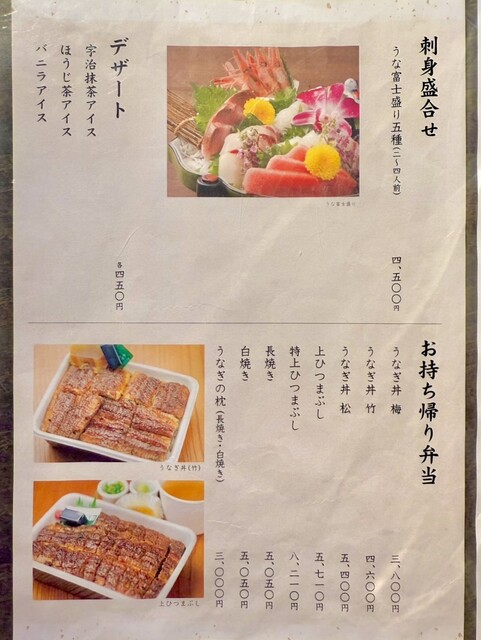 刺身盛合せ
うな富士盛り五種(二〜四人前)
四、五〇〇円
うな富士盛り
デザート
宇治抹茶アイス
ほうじ茶アイス
バニラアイス
各四五〇円
お持ち帰り弁当
うなぎ丼 梅 三、八〇〇円
うなぎ丼 竹 四、六〇〇円
うなぎ丼 松 五、四〇〇円
上ひつまぶし 五、七一〇円
特上ひつまぶし 八、二一〇円
長焼き 五、〇五〇円
白焼き 五、〇五〇円
うなぎの枕(長焼き・白焼き) 三、〇〇〇円
うなぎ丼(竹)
上ひつまぶし